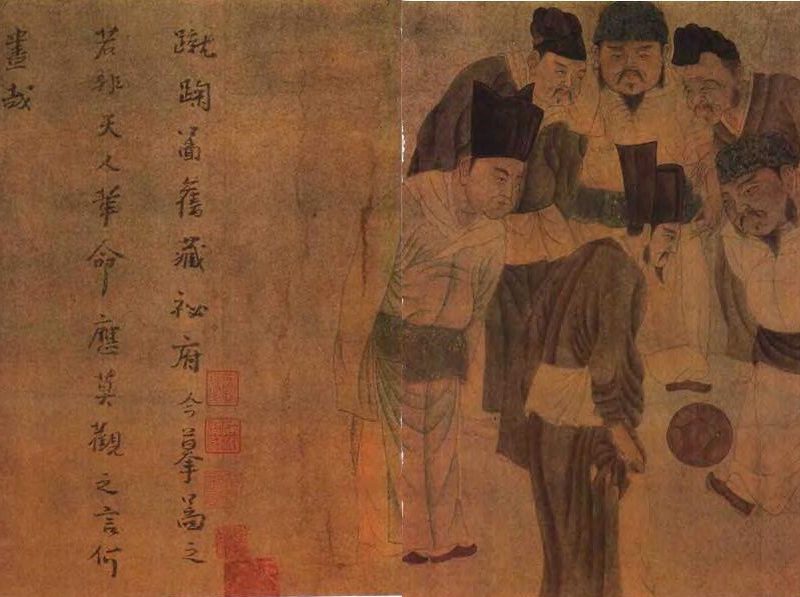 蹴踘啚舊藏祕府今摹啚之
若非天人革命應莫觀之言何
盡哉